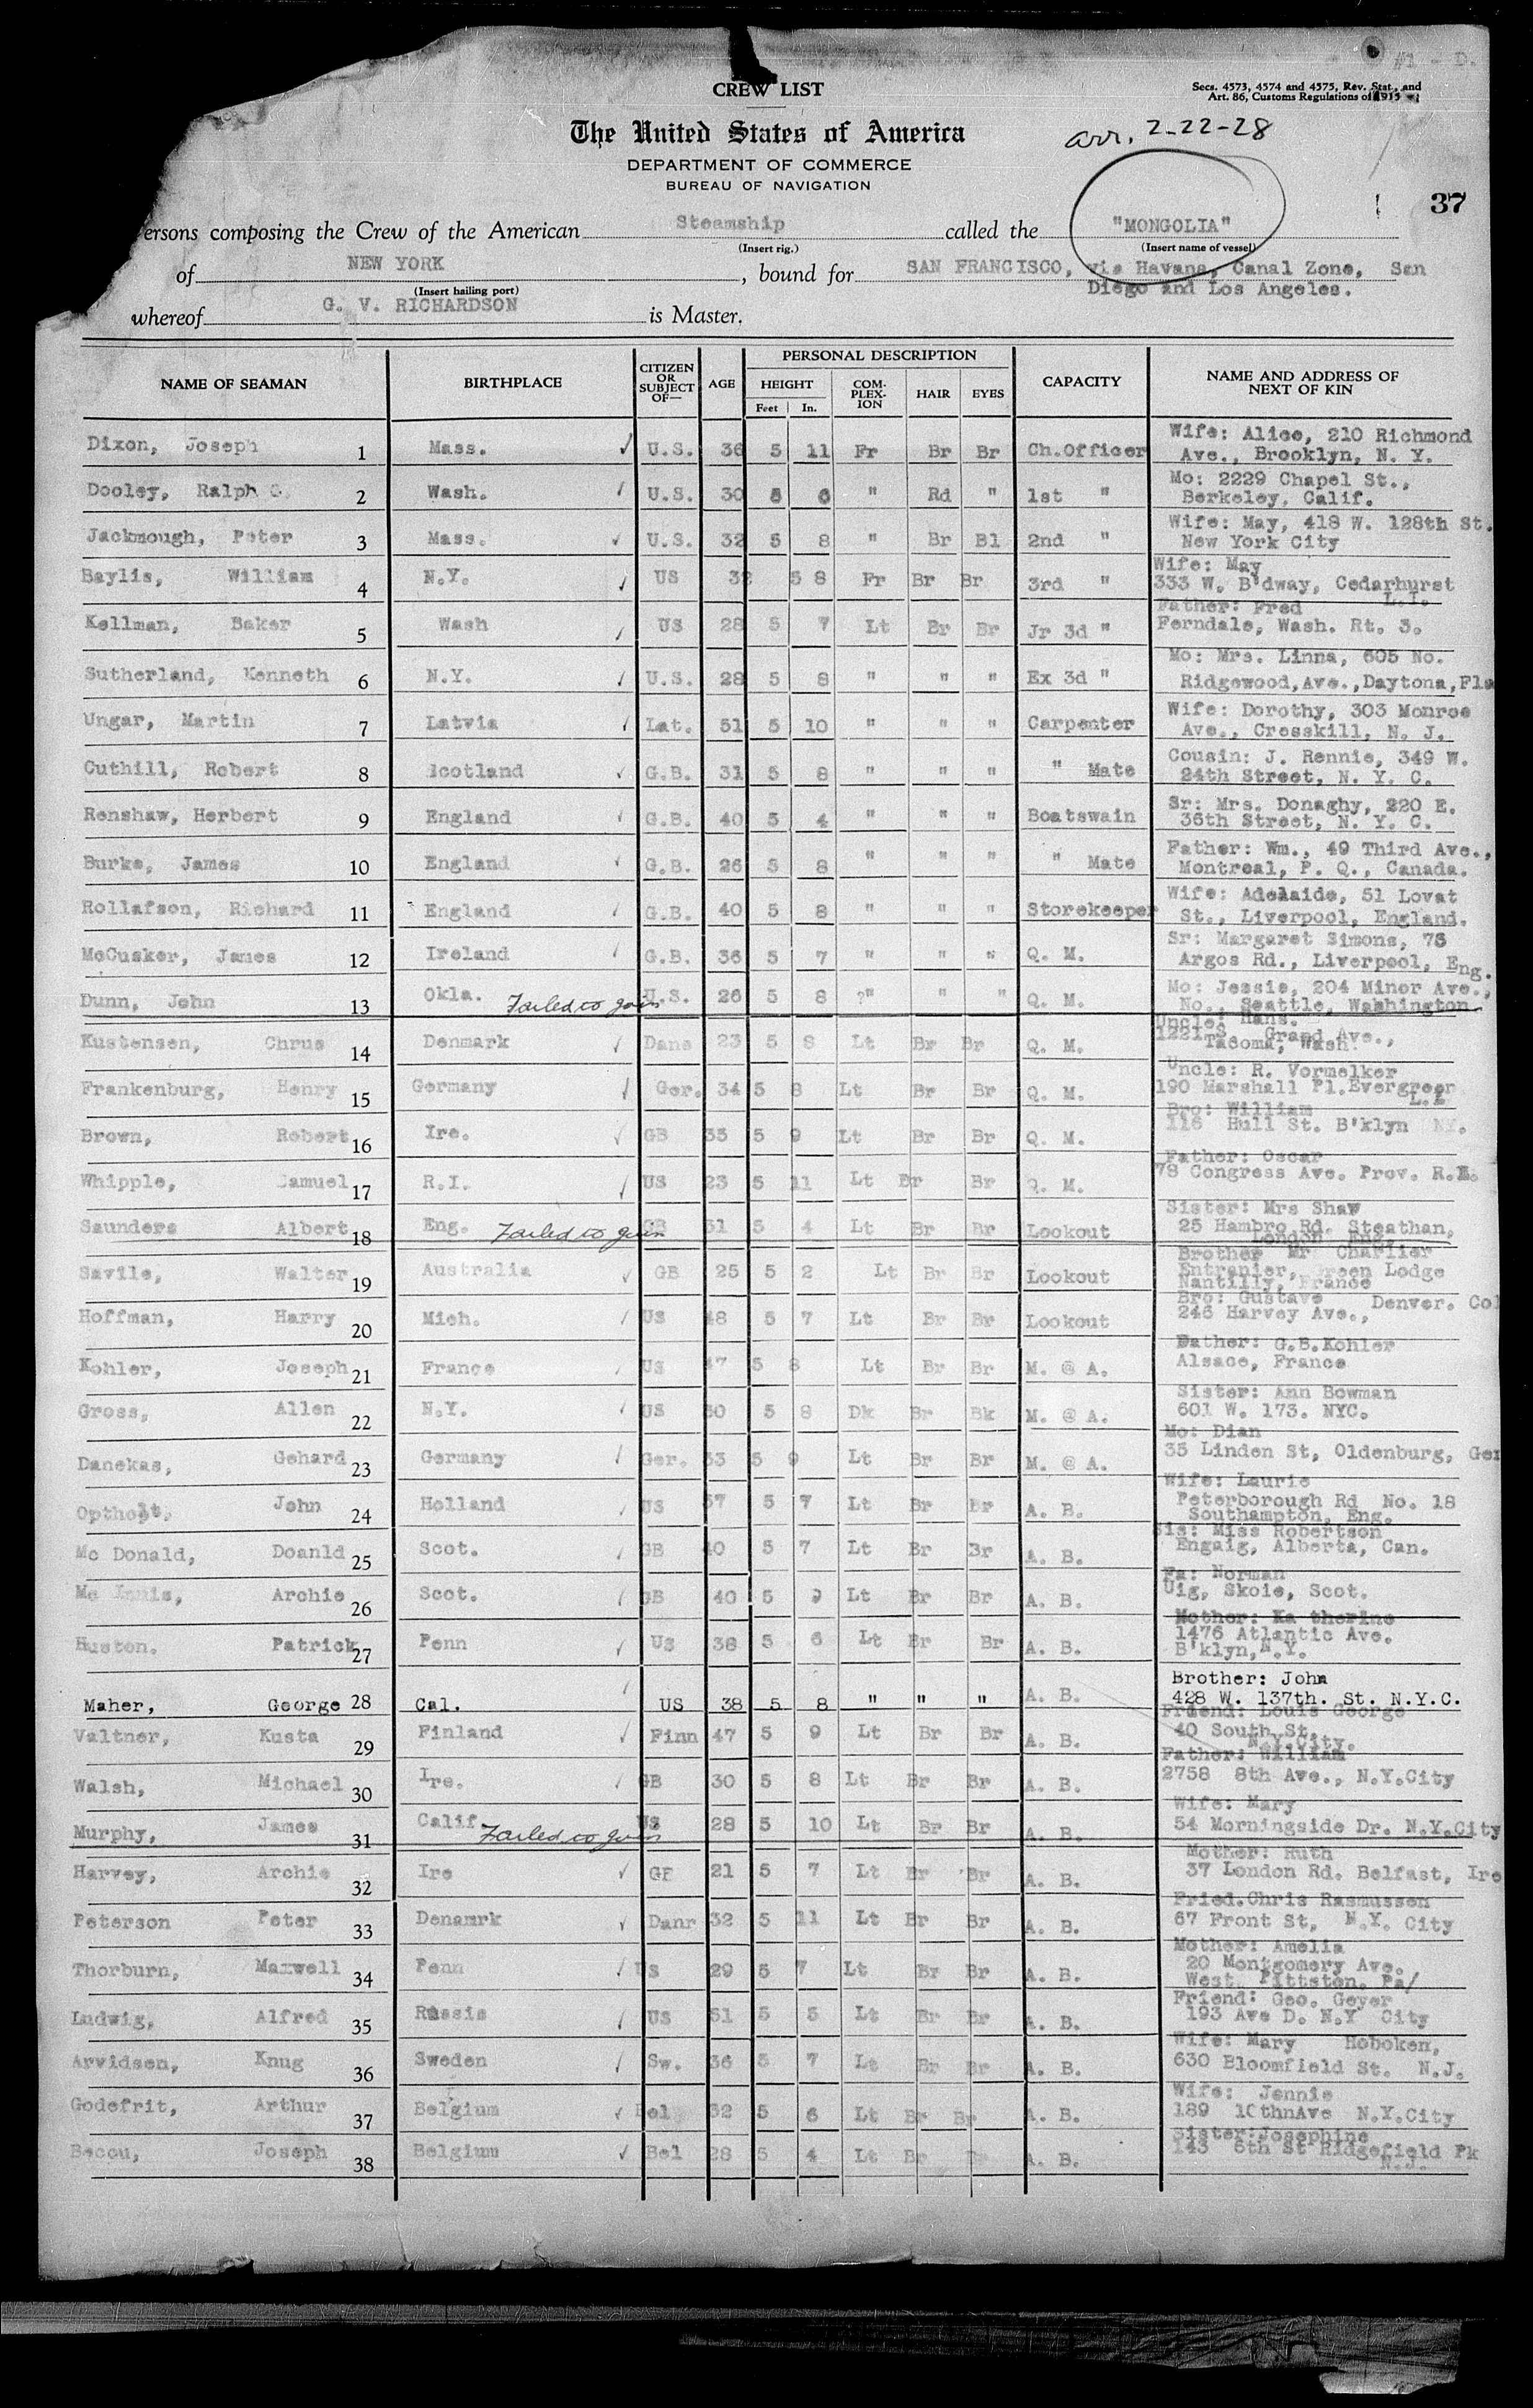 #1 - D.
CREW LIST
Secs. 4573, 4574 and 4575, Rev. Stat., and
Art. 86, Customs Regulations of 1915
The United States of America
arr. 2-22-28
DEPARTMENT OF COMMERCE
BUREAU OF NAVIGATION
37
ersons composing the Crew of the American Steamship called the "MONGOLIA"
(Insert rig.) (Insert name of vessel)
of NEW YORK, bound for SAN FRANCISCO, via Havana, Canal Zone, San
(Insert hailing port) Diego and Los Angeles.
whereof G. V. RICHARDSON is Master.
NAME OF SEAMAN BIRTHPLACE CITIZEN OR SUBJECT OF— AGE PERSONAL DESCRIPTION CAPACITY NAME AND ADDRESS OF NEXT OF KIN
HEIGHT COM-PLEX-ION HAIR EYES
Feet In.
Dixon, Joseph 1 Mass. ✓ U.S. 36 5 11 Fr Br Br Ch.Officer Wife: Alice, 210 Richmond
Ave., Brooklyn, N. Y.
Dooley, Ralph G. 2 Wash. ✓ U.S. 30 5 6 " Rd " 1st " Mo: 2229 Chapel St.,
Berkeley, Calif.
Jackmough, Peter 3 Mass. ✓ U.S. 32 5 8 " Br Bl 2nd " Wife: May, 418 W. 128th St.
New York City
Baylis, William 4 N.Y. ✓ US 32 5 8 Fr Br Br 3rd " Wife: May
333 W. B'dway, Cedarhurst
L.I.
Kellman, Baker 5 Wash ✓ US 28 5 7 Lt Br Br Jr 3d " Father: Fred
Ferndale, Wash. Rt. 3.
Sutherland, Kenneth 6 N.Y. ✓ U.S. 28 5 8 " " " Ex 3d " Mo: Mrs. Linna, 605 No.
Ridgewood,Ave.,Daytona,Fla
Ungar, Martin 7 Latvia ✓ Lat. 51 5 10 " " " Carpenter Wife: Dorothy, 303 Monroe
Ave., Cresskill, N. J.
Cuthill, Robert 8 Scotland ✓ G.B. 31 5 8 " " " " Mate Cousin: J. Rennie, 349 W.
24th Street, N. Y. C.
Renshaw, Herbert 9 England ✓ G.B. 40 5 4 " " " Boatswain Sr: Mrs. Donaghy, 220 E.
36th Street, N. Y. C.
Burke, James 10 England ✓ G.B. 26 5 8 " " " " Mate Father: Wm., 49 Third Ave.,
Montreal, P. Q., Canada.
Rollafson, Richard 11 England ✓ G.B. 40 5 8 " " " Storekeeper Wife: Adelaide, 51 Lovat
St., Liverpool, England.
McCusker, James 12 Ireland ✓ G.B. 36 5 7 " " " Q. M. Sr: Margaret Simons, 76
Argos Rd., Liverpool, Eng.
Dunn, John 13 Okla. Failed to join U.S. 26 5 8 " " " Q. M. Mo: Jessie, 204 Minor Ave.,
No., Seattle, Washington
Kustensen, Chrus 14 Denmark ✓ Dane 23 5 8 Lt Br Br Q. M. Uncle: Hans.
1221 S Grand Ave.,
Tacoma, Wash.
Frankenburg, Henry 15 Germany ✓ Ger. 34 5 8 Lt Br Br Q. M. Uncle: R. Vormelker
190 Marshall Pl.Evergreen
L.I
Brown, Robert 16 Ire. ✓ GB 35 5 9 Lt Br Br Q. M. Bro: William
116 Hull St. B'klyn NY.
Whipple, Samuel 17 R.I. ✓ US 23 5 11 Lt Br Br Q. M. Father: Oscar
78 Congress Ave. Prov. R.I.
Saunders Albert 18 Eng. Failed to join GB 31 5 4 Lt Br Br Lookout Sister: Mrs Shaw
25 Hambro Rd. Steathan,
London Eng.
Savile, Walter 19 Australia ✓ GB 25 5 2 Lt Br Br Lookout Brother Mr Charlier
Entranier, Green Lodge
Nantilly, France
Hoffman, Harry 20 Mich. ✓ US 48 5 7 Lt Br Br Lookout Bro: Gustave Denver. Col
246 Harvey Ave.,
Kohler, Joseph 21 France ✓ US 47 5 8 Lt Br Br M. @ A. Father: G.B.Kohler
Alsace, France
Gross, Allen 22 N.Y. ✓ US 30 5 8 Dk Br Bk M. @ A. Sister: Ann Bowman
601 W. 173. NYC.
Danekas, Gehard 23 Germany ✓ Ger. 33 5 9 Lt Br Br M. @ A. Mo: Dian
35 Linden St, Oldenburg, Ger
Optholt, John 24 Holland ✓ US 37 5 7 Lt Br Br A. B. Wife: Laurie
Peterborough Rd No. 18
Southampton, Eng.
Mc Donald, Doanld 25 Scot. ✓ GB 40 5 7 Lt Br Br A. B. Sis: Miss Robertson
Engaig, Alberta, Can.
Mc Innis, Archie 26 Scot. ✓ GB 40 5 9 Lt Br Br A. B. Fa: Norman
Uig, Skoie, Scot.
Huston. Patrick 27 Penn ✓ US 38 5 6 Lt Br Br A. B. Mother: Ka therine
1476 Atlantic Ave.
B'klyn,N.Y.
Maher, George 28 Cal. ✓ US 38 5 8 " " " A. B. Brother: John
428 W. 137th. St. N.Y.C.
Valtner, Kusta 29 Finland ✓ Finn 47 5 9 Lt Br Br A. B. Friend: Louis George
40 South St.
N.Y.City.
Walsh, Michael 30 Ire. ✓ GB 30 5 8 Lt Br Br A. B. Father: William
2758 8th Ave., N.Y.City
Murphy, James 31 Calif. Failed to join US 28 5 10 Lt Br Br A. B. Wife: Mary
54 Morningside Dr. N.Y.City
Harvey, Archie 32 Ire ✓ GB 21 5 7 Lt Br Br A. B. Mother: Ruth
37 London Rd. Belfast, Ire
Peterson Peter 33 Denamrk ✓ Danr 32 5 11 Lt Br Br A. B. Fried.Chris Rasmussen
67 Front St, N.Y. City
Thorburn, Maxwell 34 Penn ✓ US 29 5 7 Lt Br Br A. B. Mother: Amelia
20 Montgomery Ave.
West Pittston, Pa/
Ludwig, Alfred 35 Russia ✓ US 51 5 5 Lt Br Br A. B. Friend: Geo. Geyer
193 Ave D. N.Y City
Arvidsen, Knug 36 Sweden ✓ Sw. 36 5 7 Lt Br Br A. B. Wife: Mary Hoboken,
630 Bloomfield St. N.J.
Godefrit, Arthur 37 Belgium ✓ Bel 32 5 6 Lt Br Br A. B. Wife: Jennie
189 10thnAve N.Y.City
Becou, Joseph 38 Belgium ✓ Bel 28 5 4 Lt Br A. B. Sister:Josephine
143 6th St Ridgefield Pk
N.J.